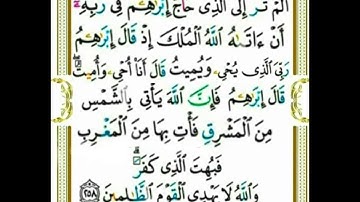 أَلَمْ تَرَ إِلَى الَّذِي حَاجَّ إِبْرَٰهِـۧمَ فِي رَبِّهِ
أَنْ ءَاتَىٰهُ اللَّهُ الْمُلْكَ إِذْ قَالَ إِبْرَٰهِـۧمُ
رَبِّيَ الَّذِي يُحْيِۦ وَيُمِيتُ قَالَ أَنَا۠ أُحْيِۦ وَأُمِيتُ
قَالَ إِبْرَٰهِـۧمُ فَإِنَّ اللَّهَ يَأْتِي بِالشَّمْسِ
مِنَ الْمَشْرِقِ فَأْتِ بِهَا مِنَ الْمَغْرِبِ
فَبُهِتَ الَّذِي كَفَرَ
وَاللَّهُ لَا يَهْدِي الْقَوْمَ الظَّٰلِمِينَ ٢٥٨